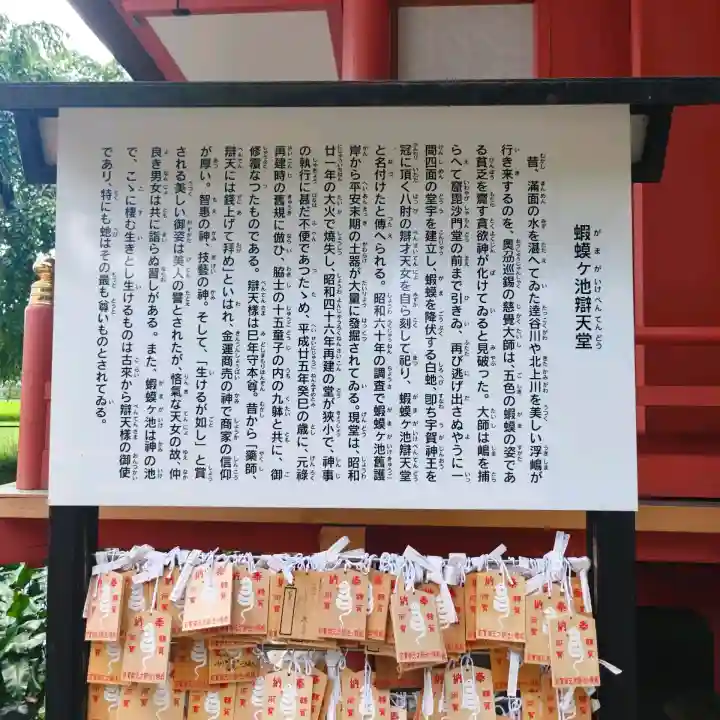 蝦蟆ヶ池辯天堂
昔、満面の水を湛へてゐた達谷川や北上川を美しい浮嶋が
行き来するのを、奥羽巡錫の慈覺大師は、五色の蝦蟆の姿であ
る貧乏を齎す貪欲神が化けてゐると見破った。大師は嶋を捕
らへて窟毘沙門堂の前まで引きゐ、再び逃げ出さぬやうに一
間四面の堂宇を建立し、蝦蟆を降伏する白虵、即ち宇賀神王を
冠に頂く八肘の辯才天女を自ら刻して祀り、蝦蟆ヶ池辯天堂
と名付けたと傳へられる。昭和六十年の調査で蝦蟆ヶ池舊護
岸から平安末期の土器が大量に発掘されてゐる。現堂は、昭和
廿一年の大火で焼失し、昭和四十六年再建の堂が狹小で、神事
の執行に甚だ不便であつたゝめ、平成廿五年癸巳の歳に、元祿
再建時の舊規に倣ひ、脇士の十五童子の内の九躰と共に、御
修覆なつたものである。辯天様は巳年守本尊。昔から「藥師、
辯天には錢上げて拜め」といはれ、金運商売の神で商家の信仰
が厚い。智惠の神、技藝の神。そして、「生けるが如し」と賞
される美しい御姿は美人の譬とされたが、悋氣な天女の故、仲
良き男女は共に詣らぬ習しがある。また、蝦蟆ヶ池は神の池
で、こゝに棲む生きとし生けるものは古來から辯天様の御使
であリ、特にも虵はその最も尊いものとされてゐる。
奉
納